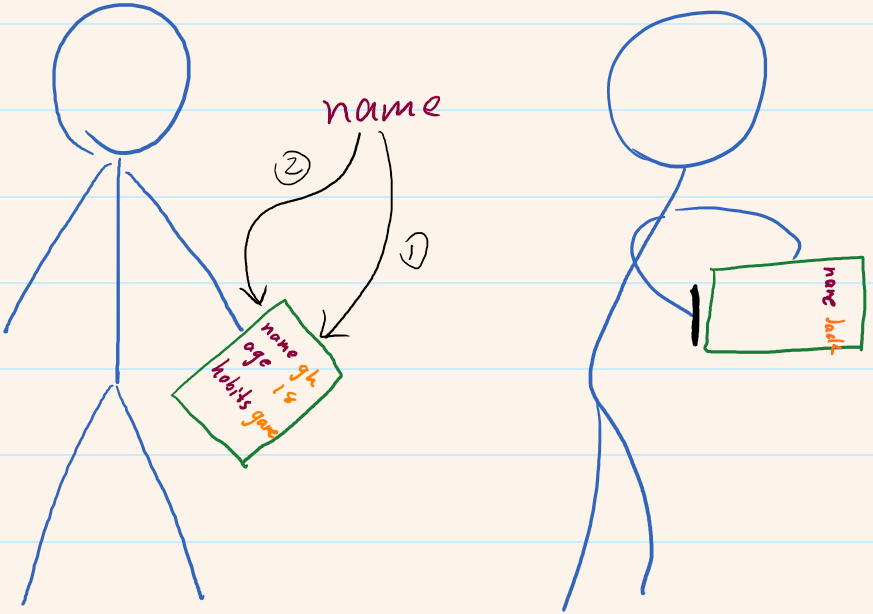 name
②
①
name gh
age 18
hobits game
name